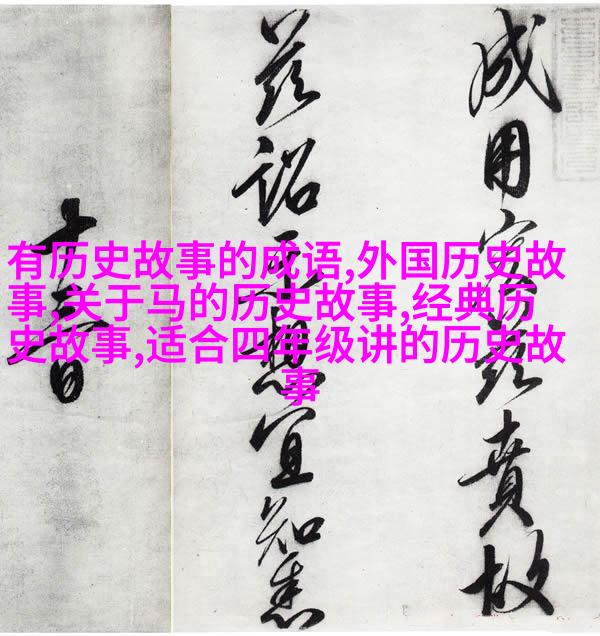 成用兹賁故
兹詔示想宜知悉
十日
有历史故事的成语,外国历史故
事,关于马的历史故事,经典历
史故事,适合四年级讲的历史故
事